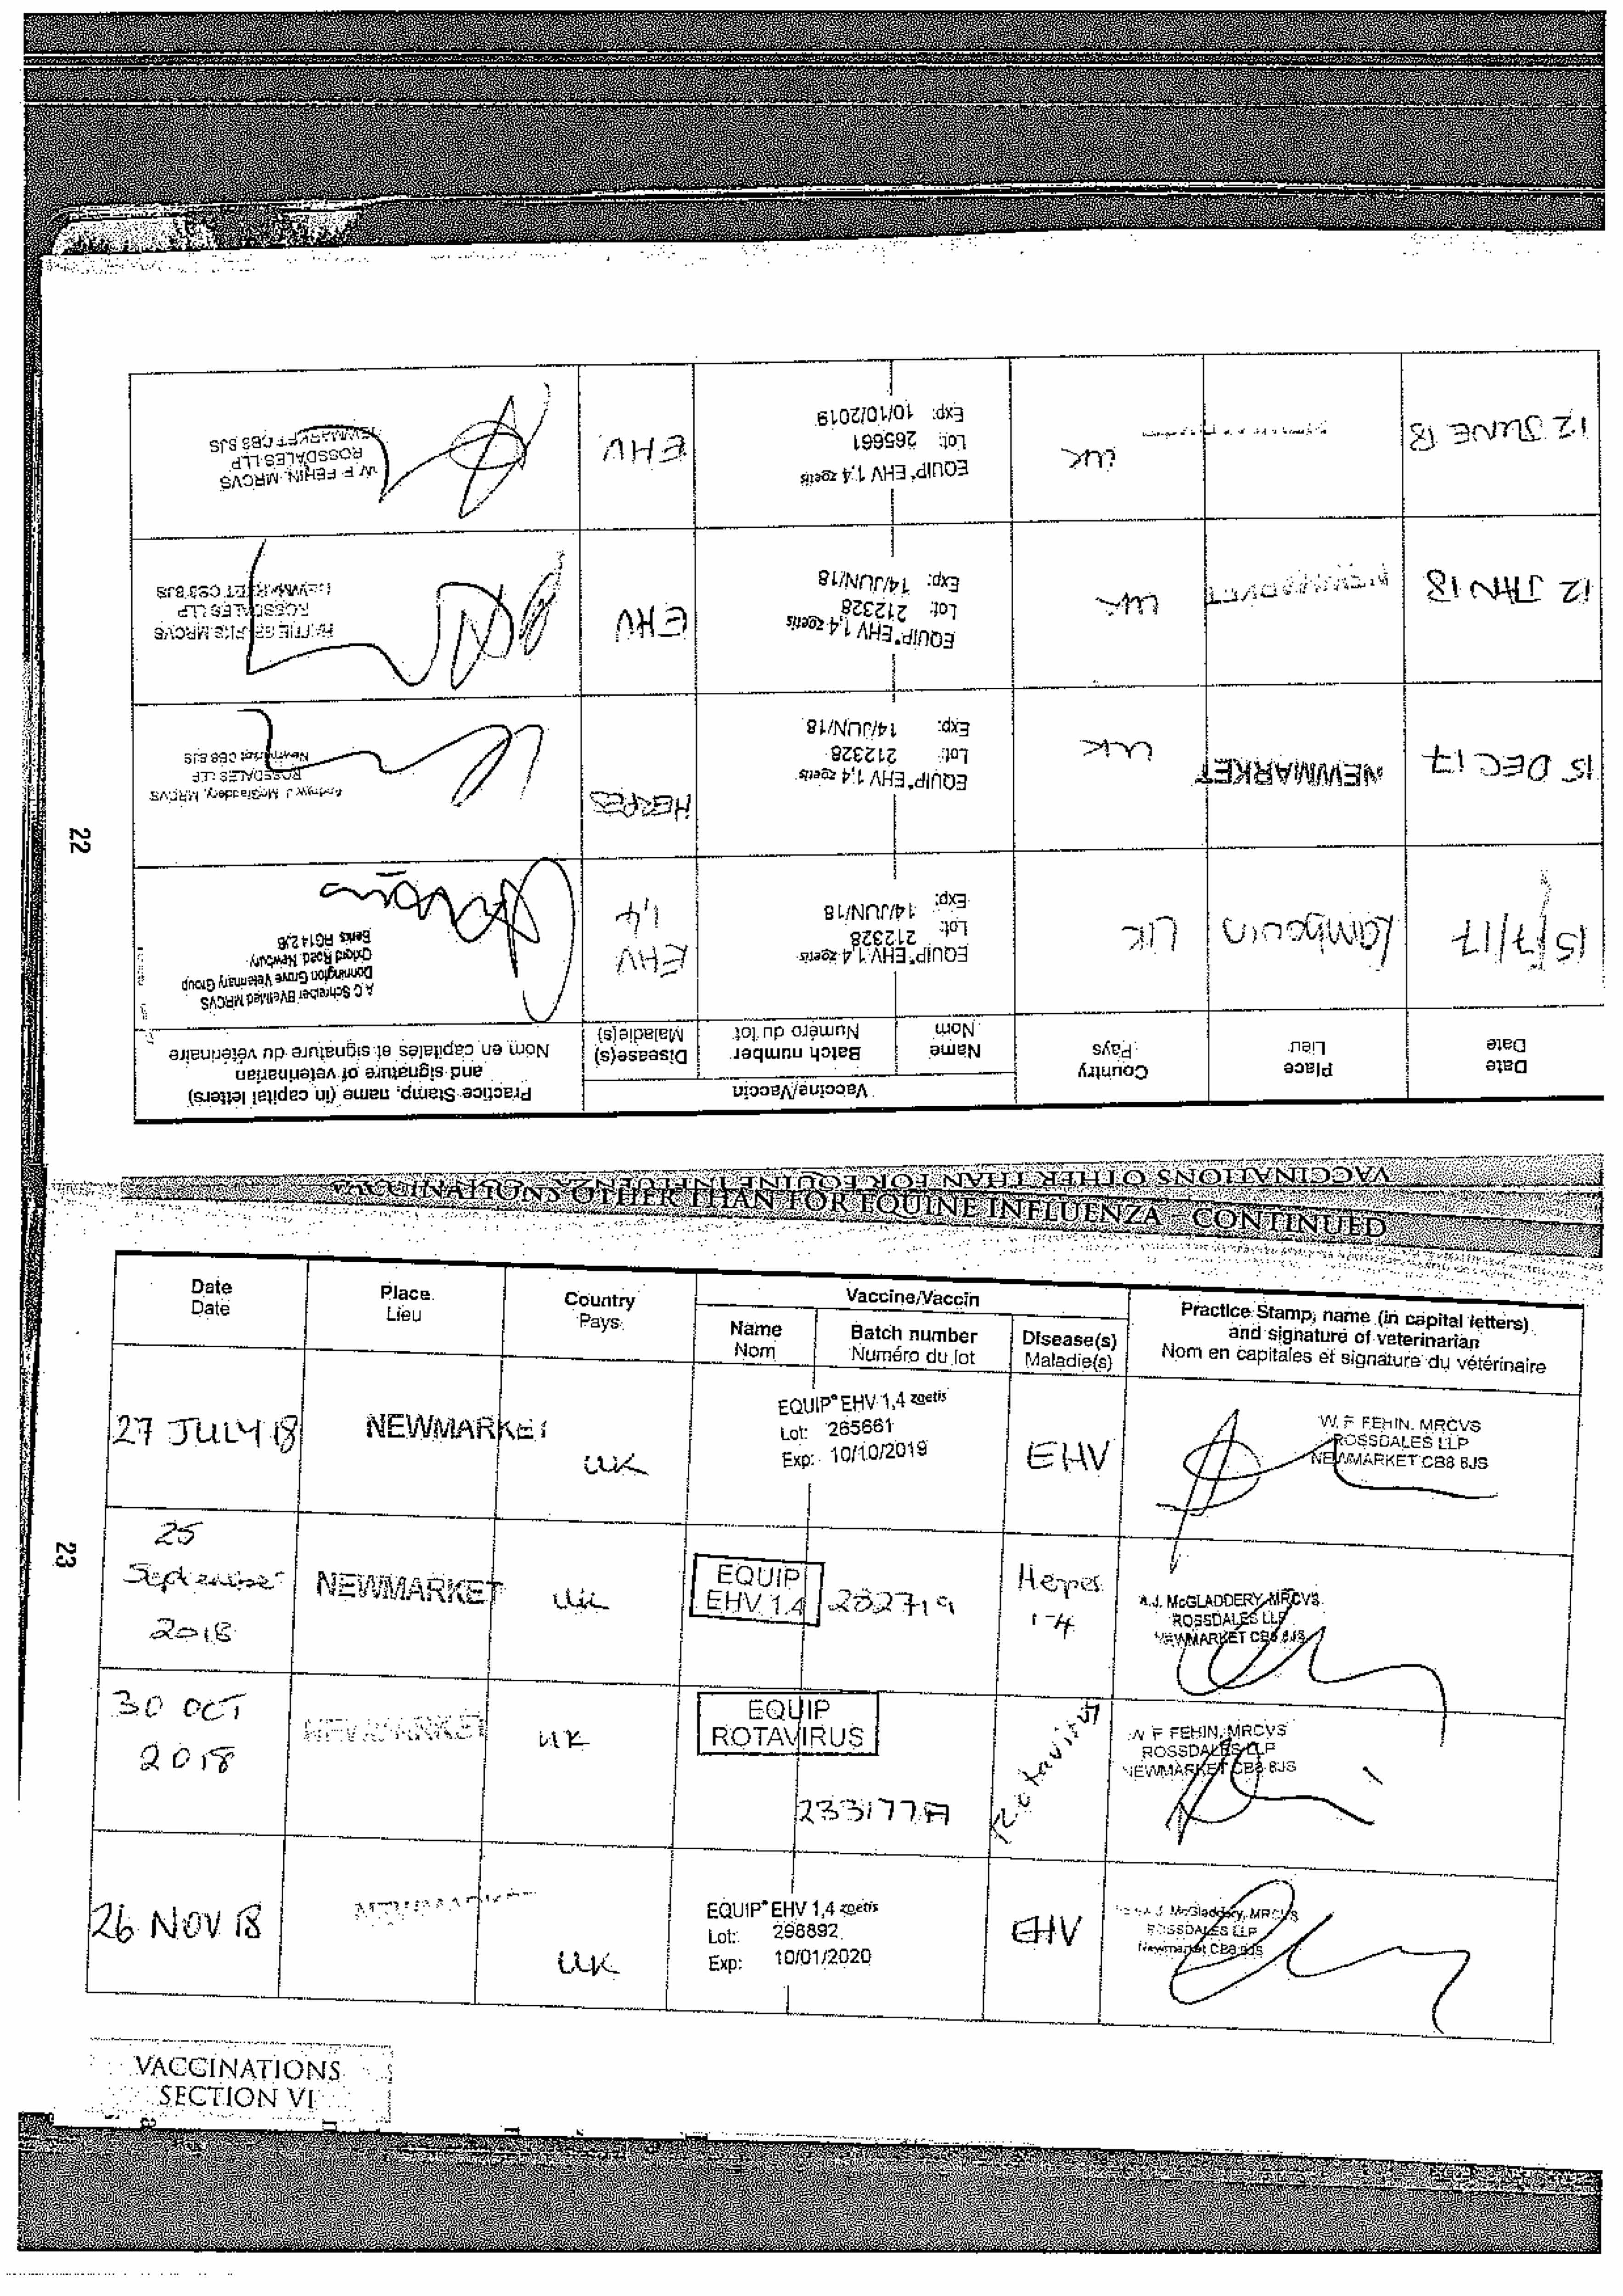 22
VACCINATIONS OTHER THAN FOR EQUINE INFLUENZA
Date
Date
Place
Lieu
Country
Pays
Vaccine/Vaccin
Name
Nom
Batch number
Numéro du lot
Disease(s)
Maladie(s)
Practice Stamp, name (in capital letters)
and signature of veterinarian
Nom en capitales et signature du vétérinaire
15/7/17
Lambourn
UK
EQUIP EHV 1,4 zoetis
Lot: 212328
Exp: 14/JUN/18
EHV
1,4
A C Schreiber BVetMed MRCVS
Donnington Grove Veterinary Group
Oxford Road, Newbury
Berks RG14 2JB
15 DEC 17
NEWMARKET
UK
EQUIP EHV 1,4 zoetis
Lot: 212328
Exp: 14/JUN/18
HERPES
Andrew J. McGladdery, MRCVS
ROSSDALES LLP
Newmarket CB8 8JS
12 JAN 18
NEWMARKET
UK
EQUIP EHV 1,4 zoetis
Lot: 212328
Exp: 14/JUN/18
EHV
MRCVS
ROSSDALES LLP
NEWMARKET CB8 8JS
12 JUNE 18
UK
EQUIP EHV 1,4 zoetis
Lot: 265661
Exp: 10/10/2019
EHV
W. F. FEHIN, MRCVS
ROSSDALES LLP
NEWMARKET CB8 8JS
VACCINATIONS OTHER THAN FOR EQUINE INFLUENZA - CONTINUED
Date
Date
Place
Lieu
Country
Pays
Vaccine/Vaccin
Name
Nom
Batch number
Numéro du lot
Disease(s)
Maladie(s)
Practice Stamp, name (in capital letters)
and signature of veterinarian
Nom en capitales et signature du vétérinaire
27 JULY 18
NEWMARKET
UK
EQUIP EHV 1,4 zoetis
Lot: 265661
Exp: 10/10/2019
EHV
W. F. FEHIN, MRCVS
ROSSDALES LLP
NEWMARKET CB8 8JS
23
25
September
2018
NEWMARKET
UK
EQUIP
EHV 1.4
232719
Herpes
1-4
A.J. McGLADDERY, MRCVS
ROSSDALES LLP
NEWMARKET CB8 8JS
30 OCT
2018
NEWMARKET
UK
EQUIP
ROTAVIRUS
233177A
Rotavirus
W F FEHIN, MRCVS
ROSSDALES LLP
NEWMARKET CB8 8JS
26 NOV 18
NEWMARKET
UK
EQUIP EHV 1,4 zoetis
Lot: 296892
Exp: 10/01/2020
EHV
J. McGladdery, MRCVS
ROSSDALES LLP
Newmarket CB8 8JS
VACCINATIONS
SECTION VI